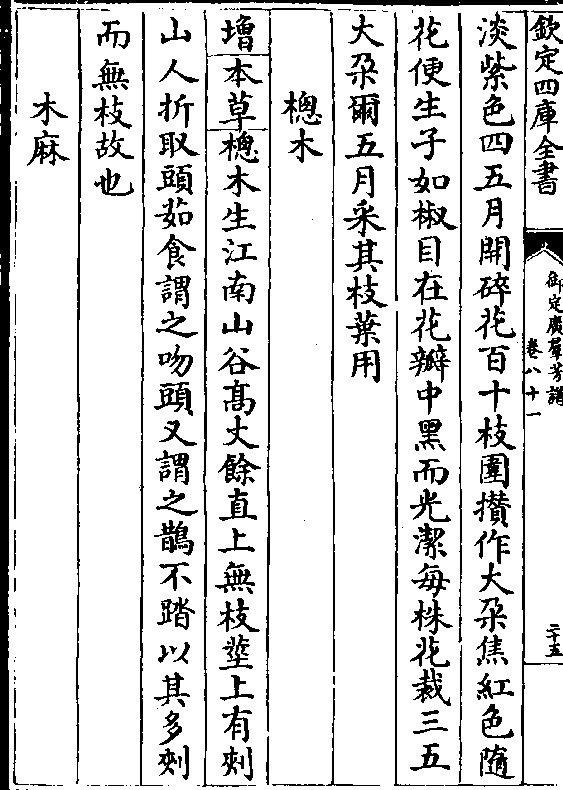 欽定四庫全書
御定廣羣芳譜
卷八十一
二十五
淡紫色四五月開碎花百十枝圍攢作大朶焦紅色隨
花便生子如椒目在花瓣中黑而光潔每株花裁三五
大朶爾五月采其枝葉用
楤木
增本草楤木生江南山谷髙丈餘直上無枝莖上有刺
山人折取頭茹食謂之吻頭又謂之鵲不踏以其多刺
而無枝故也
木麻